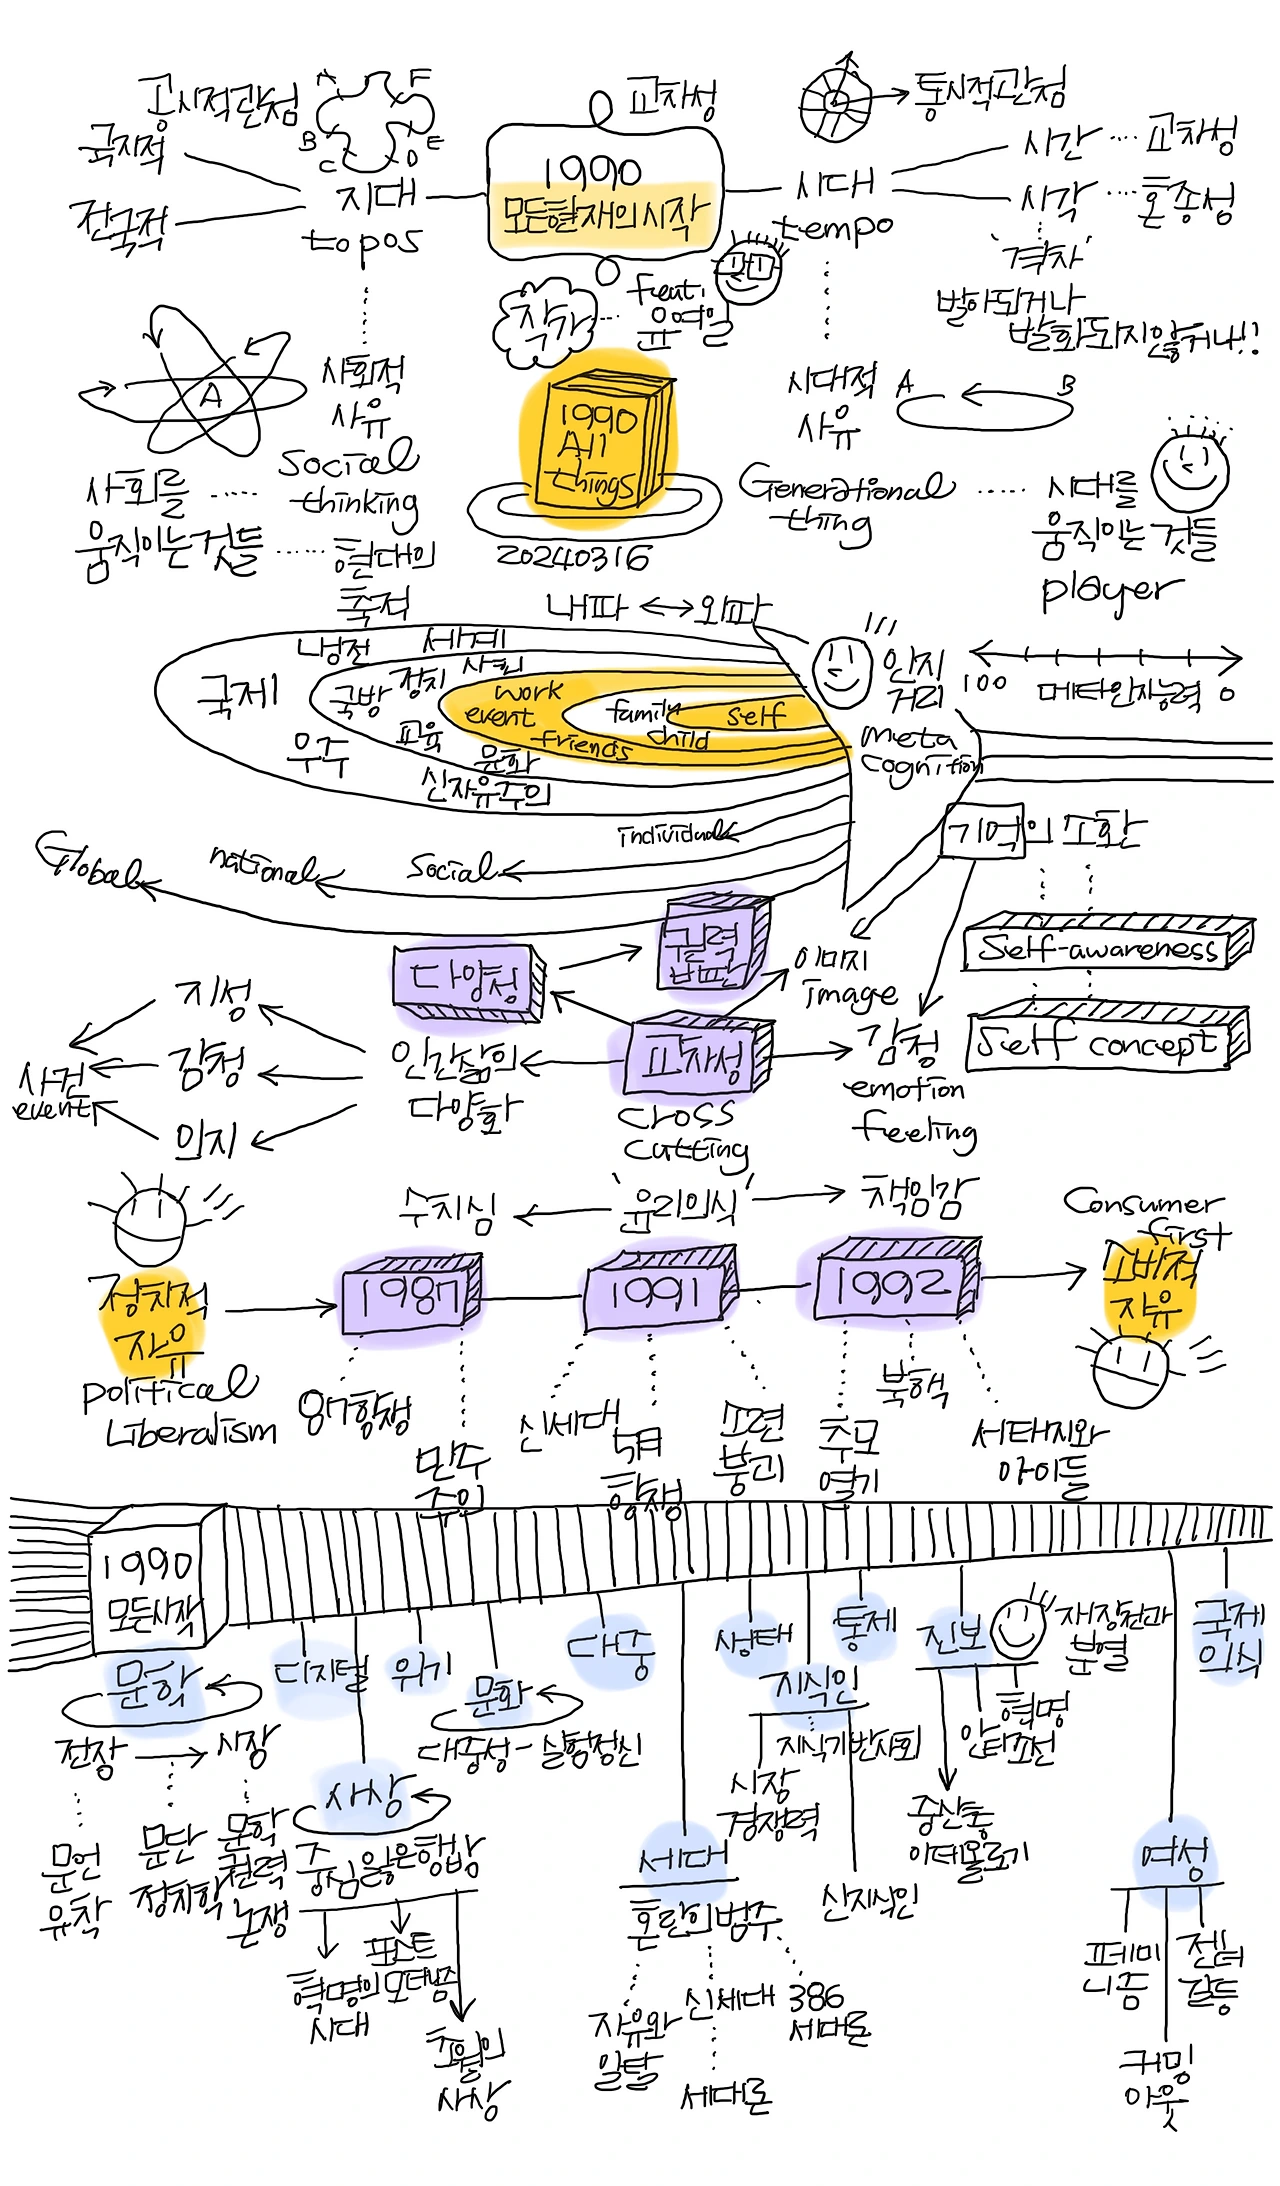 공시적관점
A
F
B
E
C
D
국지적
전국적
지대
topos
교차성
1990
모든현재의시작
작가
feat.
윤여일
통시적관점
시대
tempo
시간
교차성
시각
혼종성
'격차'
발아되거나
발화되지않거나!!
A
사회적
사유
Social
thinking
사회를
움직이는것들
현대의
축적
1990
All
things
20240316
시대적
사유
A
B
Generational
thing
시대를
움직이는 것들
player
내파
외파
냉전
세계
국제
국방
정치
사회
work
event
family
self
child
friends
교육
문화
우주
신자유주의
인지
거리
100
메타인지능력
0
meta
cognition
individual
Social
national
Global
기억의 소환
Self-awareness
Self concept
다양성
권력
비판
이미지
image
지성
감정
인지
사건
event
인간삶의
다양화
교차성
cross
cutting
감정
emotion
feeling
수치심
'윤리의식'
책임감
Consumer
first
소비적
자유
정치적
자유
political
Liberalism
1987
1991
1992
87항쟁
민주
주의
신세대
5월
항쟁
소련
붕괴
추모
열기
북핵
서태지와
아이들
1990
모든시작
문학
디지털
위기
문화
대중
생태
지식인
통제
진보
재장전과
분열
국제
의식
전장
시장
대중성-실험정신
문언
유착
문단
정치학
문학
권력
논쟁
사상
중심잃은행방
혁명의
시대
포스트
모더니즘
초월의
사상
세대
혼란의범주
자유와
일탈
신세대
세대론
386
세대론
시장
경쟁력
지식기반사회
신지식인
혁명
안티조선
중산층
이데올로기
여성
페미
니즘
젠더
갈등
커밍
아웃